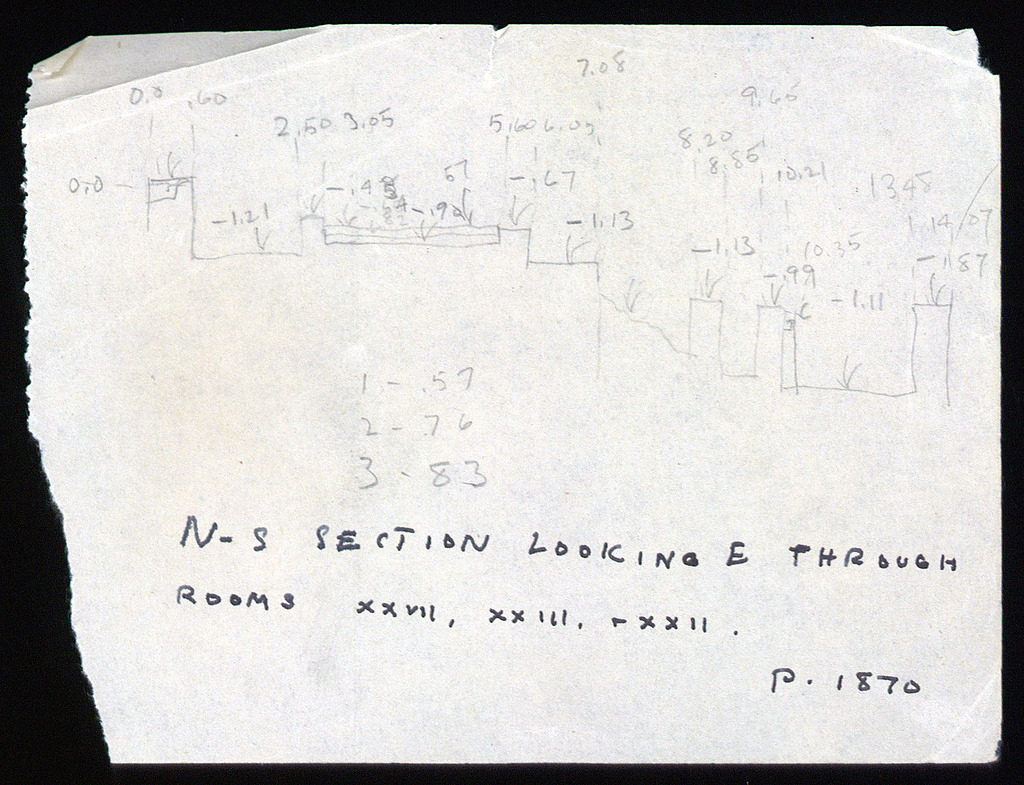 7.08
0.0 .60 9.65
2.50 3.05 5.60 6.05
8.20
8.85
57 10.21
0.0 - - .67 13.45
-1.21 -.90 -1.13 14.07
-1.13 10.35 -.87
-.99
-1.11
1 - .57
2 - 76
3 - 83
N-S SECTION LOOKING E THROUGH
ROOMS XXVII, XXIII, + XXII.
P. 1870